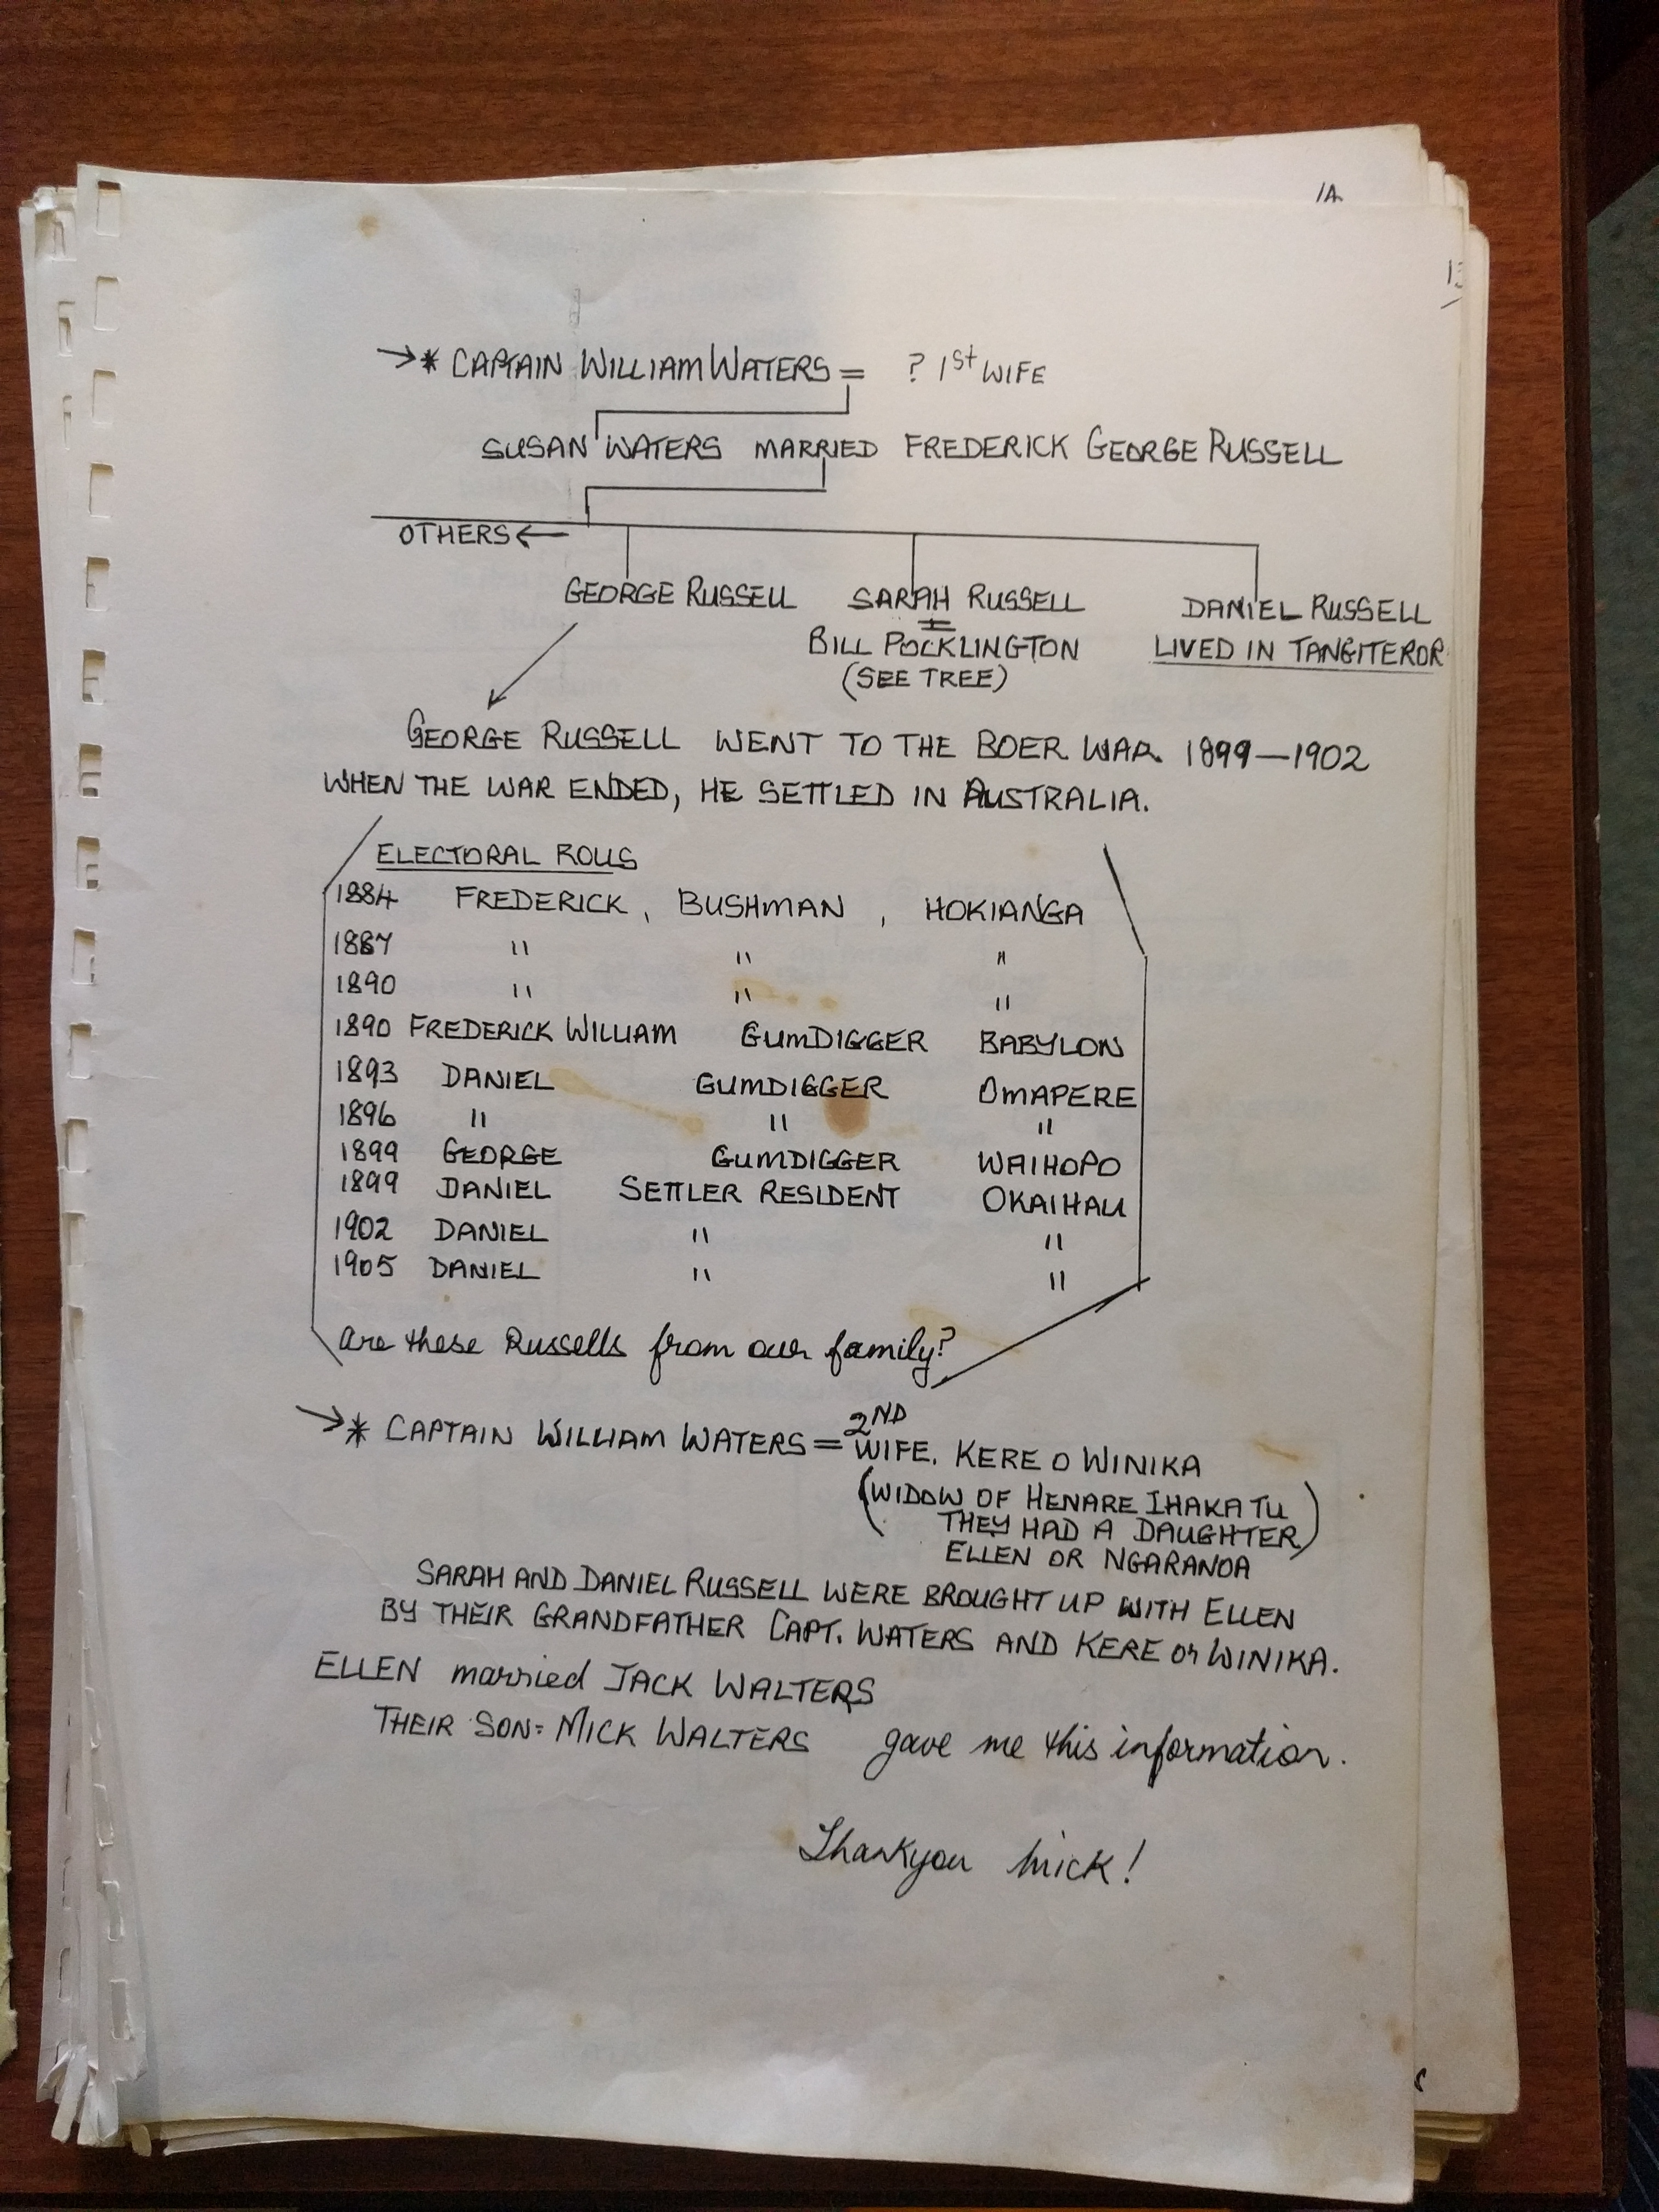 1A
→* CAPTAIN WILLIAM WATERS = ? 1st WIFE
SUSAN WATERS MARRIED FREDERICK GEORGE RUSSELL
OTHERS ←
GEORGE RUSSELL SARAH RUSSELL DANIEL RUSSELL
= BILL POCKLINGTON LIVED IN TANGITEROR
(SEE TREE)
GEORGE RUSSELL WENT TO THE BOER WAR. 1899—1902
WHEN THE WAR ENDED, HE SETTLED IN AUSTRALIA.
ELECTORAL ROLLS
1884 FREDERICK, BUSHMAN, HOKIANGA
1887 " " "
1890 " " "
1890 FREDERICK WILLIAM GUMDIGGER BABYLON
1893 DANIEL GUMDIGGER OMAPERE
1896 " " "
1899 GEORGE GUMDIGGER WAIHOPO
1899 DANIEL SETTLER RESIDENT OKAIHAU
1902 DANIEL " "
1905 DANIEL " "
Are these Russells from our family?
→* CAPTAIN WILLIAM WATERS = 2ND WIFE. KERE O WINIKA
(WIDOW OF HENARE IHAKA TU
THEY HAD A DAUGHTER)
ELLEN OR NGARANOA
SARAH AND DANIEL RUSSELL WERE BROUGHT UP WITH ELLEN
BY THEIR GRANDFATHER CAPT. WATERS AND KERE or WINIKA.
ELLEN married JACK WALTERS
THEIR SON= MICK WALTERS gave me this information.
Thankyou Mick!